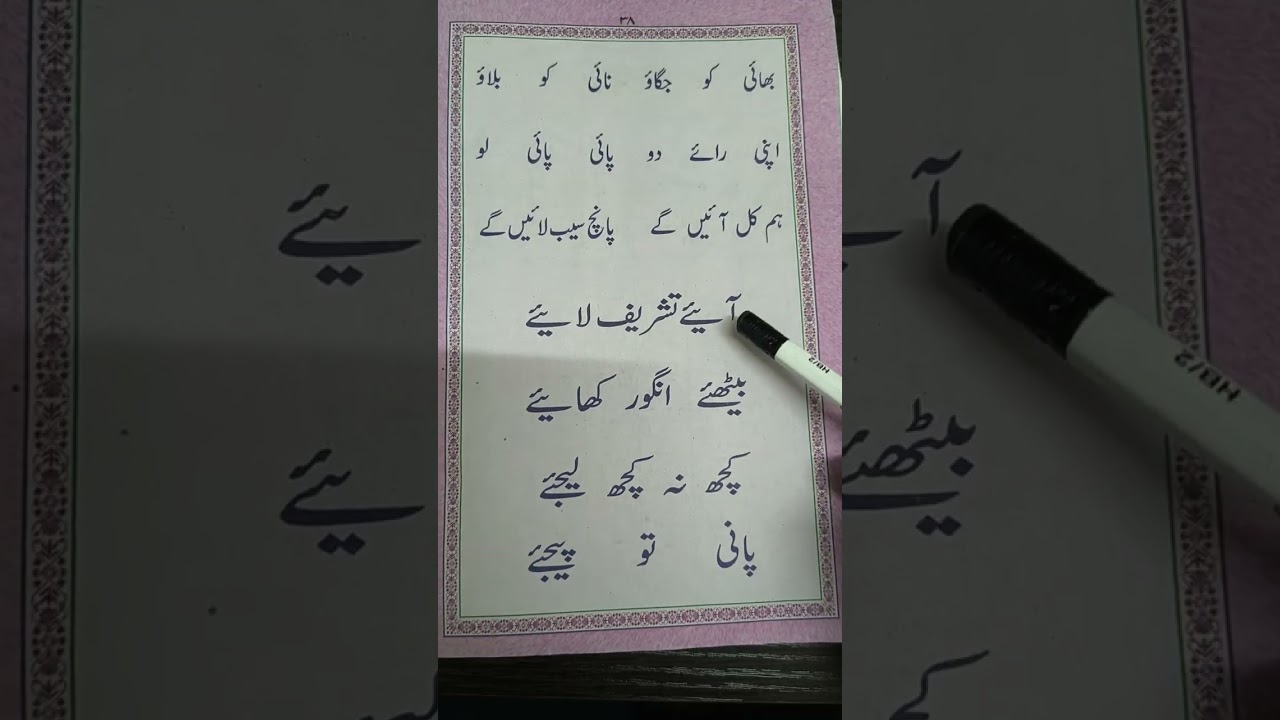 ۳۸
بھائی کو جگاؤ نائی کو بلاؤ
اپنی رائے دو پائی پائی لو
ہم کل آئیں گے پانچ سیب لائیں گے
آیئے تشریف لایئے
بیٹھئے انگور کھایئے
کچھ نہ کچھ لیجئے
پانی تو پیجئے
HB/2